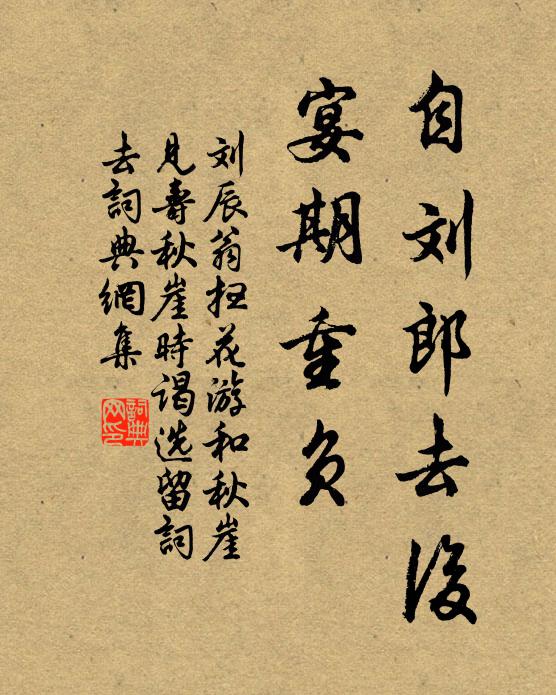 自刘郎去後
宴期重负
刘辰翁扫花游和秋崖
见寿秋崖時谒选留詞
去詞典網集
詞典网印